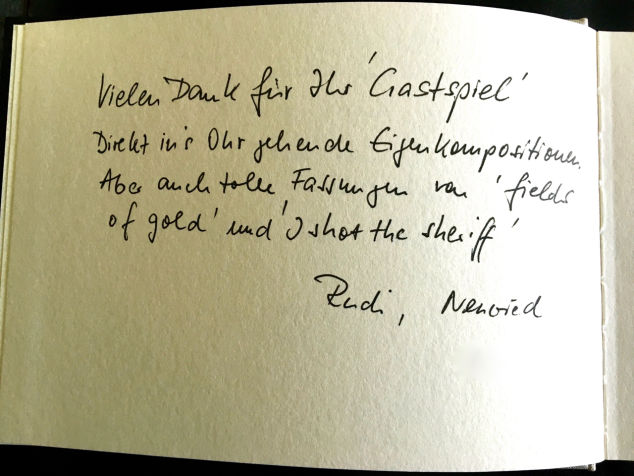 Vielen Dank für Ihr 'Gastspiel'
Direkt in's Ohr gehende Eigenkompositionen.
Aber auch tolle Fassungen von 'fields
of gold' und 'I shot the sheriff'
Rudi, Neuwied